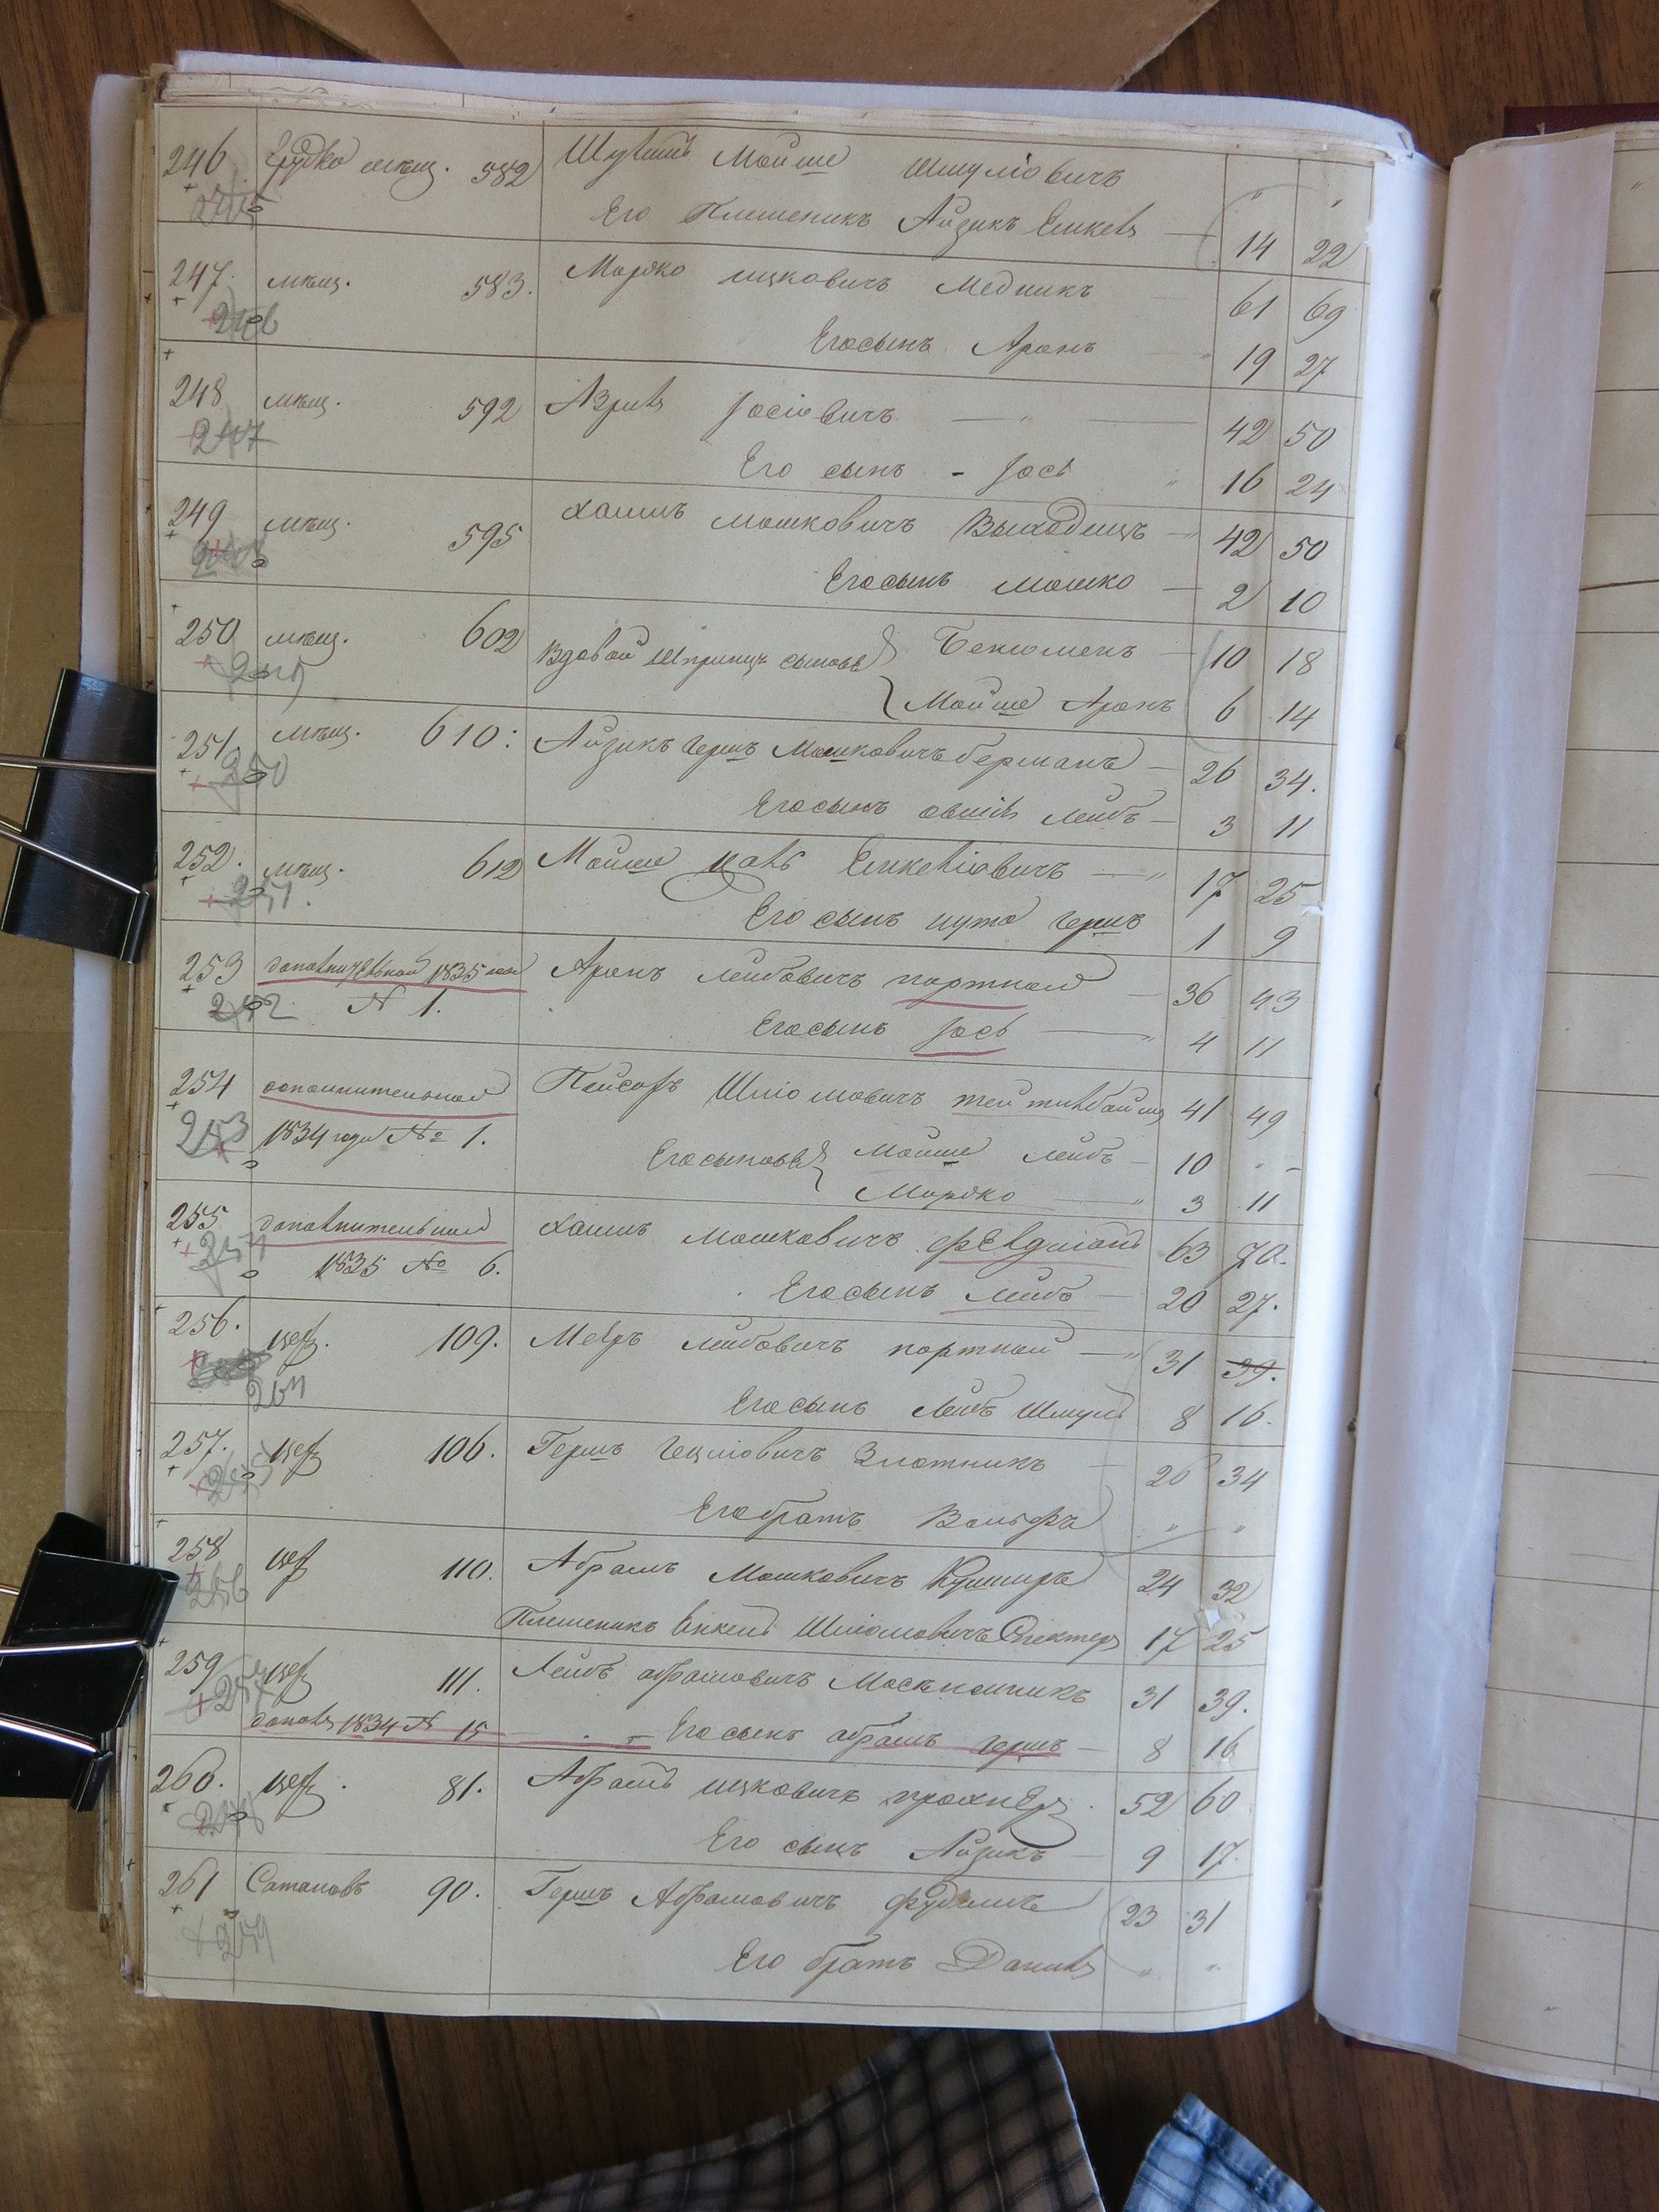 246 мѣщ. 582 Мойше Шмуліовичъ
Его Племеникъ Айзикъ Емкель — 14 22
247. мѣщ. 583. Мордко ицковичъ Медникъ 61 69
Его сынъ Аронъ 19 27
248 мѣщ. 592 Азриль Іосіовичъ — " — 42 50
Его сынъ - Іось " 16 24
249 мѣщ. 595 Хаимъ мошковичъ Выходецъ — 42 50
Его сынъ мошко — 2 10
250 мѣщ. 602 Вдовой Шпринцы сыновья Бенюменъ — 10 18
Мойше Аронъ 6 14
251 мѣщ. 610: Айзикъ Гершъ Мошковичъ берманъ — 26 34.
250
Его сынъ овшій Лейбъ — 3 11
252. мѣщ. 612 Мойше Енкеліовичъ — " 17 25
251.
Его сынъ нута Гершъ 1 9
253 дополнительной 1835 года Аронъ Лейбовичъ портной — 36 43
252 № 1.
Его сынъ Іось — " 4 11
254 дополнительной Пейсахъ Шліомовичъ 41 49
253 1834 года № 1. Его сыновья Мойше Лейбъ — 10 " —
Мордко — " 3 11
255 дополнительной Хаимъ мошковичъ фельдманъ 63 70.
1835 № 6.
Его сынъ Лейбъ — 20 27.
256. 109. Мееръ Лейбовичъ портной — " 31 39.
Его сынъ Лейбъ Шмуль 8 16.
257. 106. Гершъ Гецліовичъ Злотникъ — 26 34
Его братъ Вольфъ " "
258 110. Абрамъ Мошковичъ Кушниръ 24 32
256
Племеникъ Енкель Шліомовичъ Спекторъ 17 25
259 111. Лейбъ абрамовичъ 31 39.
257
дополн 1834 № 15 — Его сынъ абрамъ Гершъ — 8 16
260. 81. Абрамъ ицковичъ 52 60
Его сынъ Айзикъ — 9 17.
261 Сатановъ 90. Гершъ Абрамовичъ 23 31
259
Его братъ Даниль " "